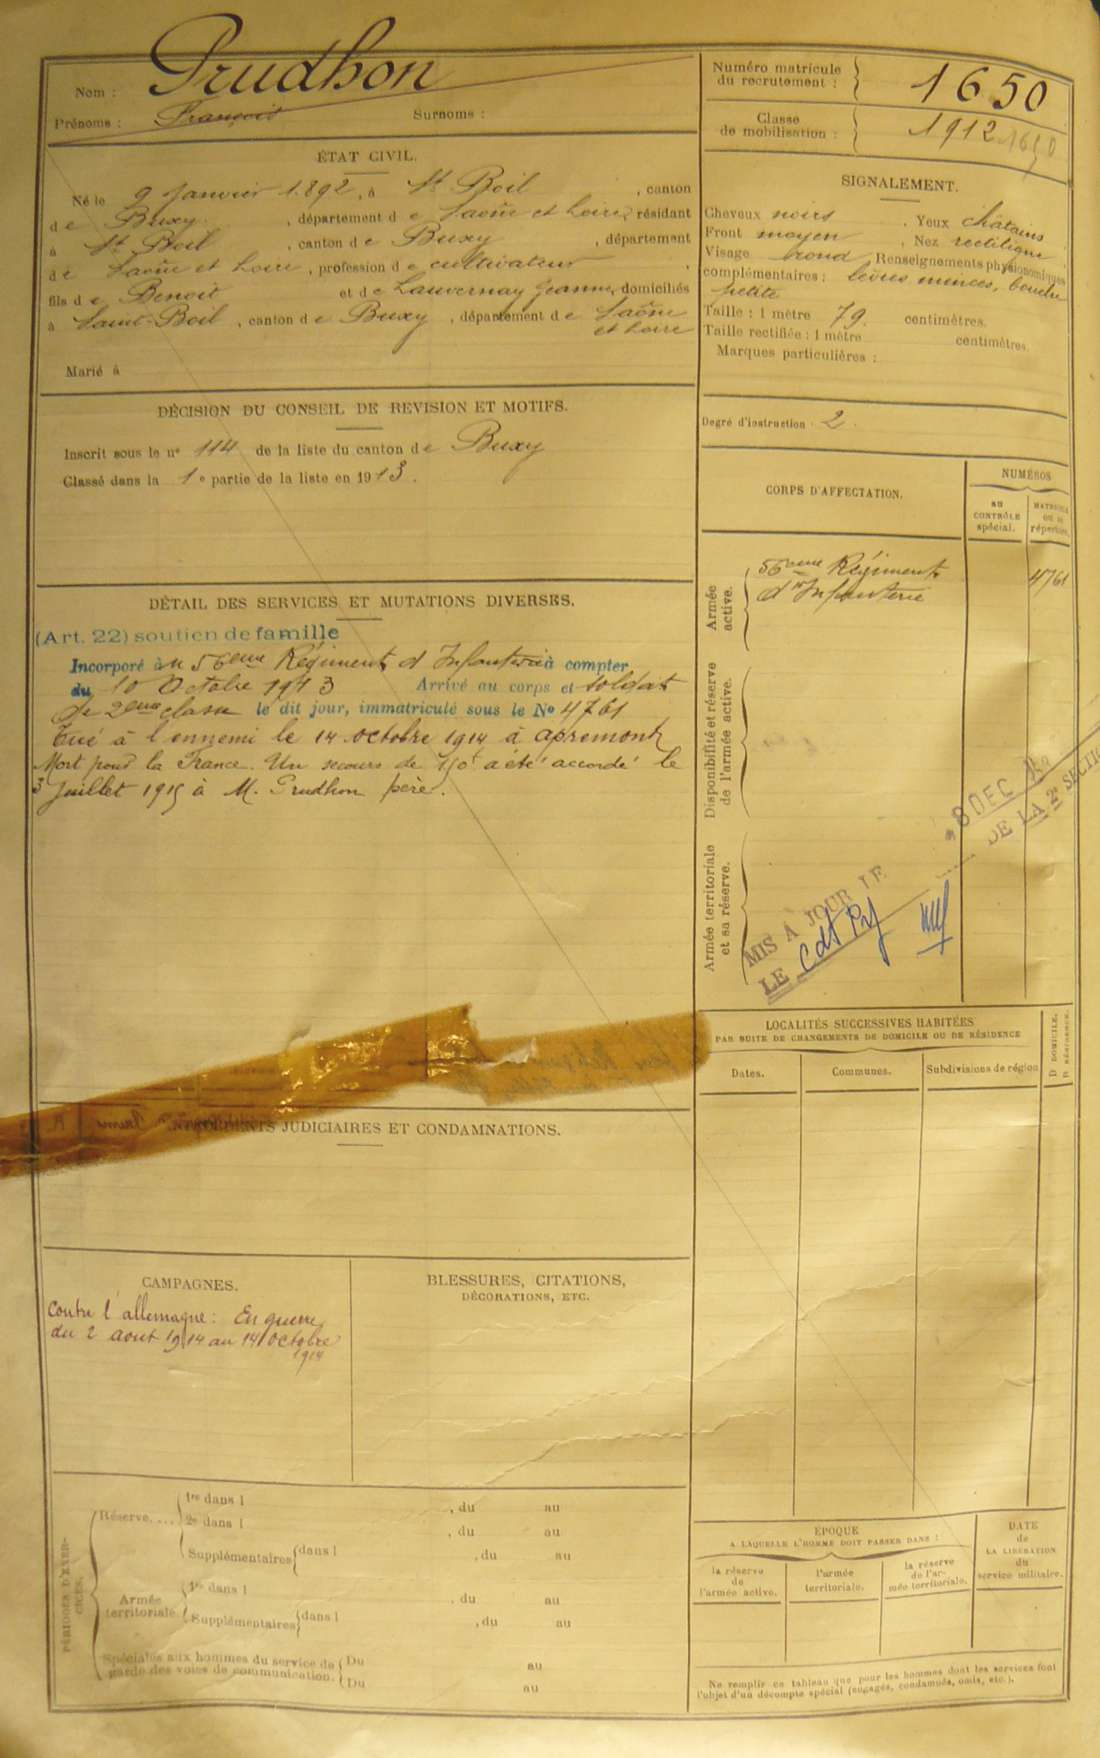 Nom : Prudhon
Prénoms : François Surnoms :
Numéro matricule du recrutement : 1650
Classe de mobilisation : 1912 1650
ÉTAT CIVIL.
Né le 9 Janvier 1892, à St Boil, canton
de Buxy, département de Saône et Loire, résidant
à St Boil, canton de Buxy, département
de Saône et Loire, profession de cultivateur,
fils de Benoit et de Lauvernay Jeanne, domiciliés
à Saint-Boil, canton de Buxy, département de Saône
et Loire
Marié à
SIGNALEMENT.
Cheveux noirs. Yeux châtains
Front moyen, Nez rectiligne
Visage rond Renseignements physionomiques
complémentaires : lèvres minces, bouche
petite
Taille : 1 mètre 79 centimètres.
Taille rectifiée : 1 mètre centimètres.
Marques particulières :
Degré d'instruction : 2.
DÉCISION DU CONSEIL DE REVISION ET MOTIFS.
Inscrit sous le n° 114 de la liste du canton de Buxy
Classé dans la 1e partie de la liste en 1913.
DÉTAIL DES SERVICES ET MUTATIONS DIVERSES.
(Art. 22) soutien de famille
Incorporé au 56eme Régiment d'Infanterie à compter
du 10 Octobre 1913 Arrivé au corps et soldat
de 2eme classe le dit jour, immatriculé sous le No 4761
Tué à l'ennemi le 14 octobre 1914 à apremont
Mort pour la France. Un secours de 150f a été accordé le
3 Juillet 1915 à M. Prudhon père.
CORPS D'AFFECTATION.
NUMÉROS
au CONTRÔLE spécial.
MATRICULE ou au répertoire.
Armée active.
56eme Régiment 4761
d'Infanterie
Disponibilité et réserve de l'armée active.
Armée territoriale et sa réserve.
MIS À JOUR LE 8 DEC
LE cdt DE LA 2e SECTIO
LOCALITÉS SUCCESSIVES HABITÉES
PAR SUITE DE CHANGEMENTS DE DOMICILE OU DE RÉSIDENCE
Dates. Communes. Subdivisions de région
D DOMICILE.
R RÉSIDENCE.
JUDICIAIRES ET CONDAMNATIONS.
CAMPAGNES.
Contre l'allemagne : En guerre
du 2 aout 1914 au 14 octobre
1914
BLESSURES, CITATIONS,
DÉCORATIONS, ETC.
PÉRIODES D'EXERCICES.
Réserve....
1re dans l , du au
2e dans l , du au
Supplémentaires dans l , du au
Armée territoriale.
1re dans l , du au
Supplémentaires dans l , du au
Spéciales aux hommes du service de
garde des voies de communication.
Du au
Du au
ÉPOQUE
A LAQUELLE L'HOMME DOIT PASSER DANS :
la réserve de l'armée active.
l'armée territoriale.
la réserve de l'armée territoriale.
DATE de LA LIBÉRATION du service militaire.
Ne remplir ce tableau que pour les hommes dont les services font
l'objet d'un décompte spécial (engagés, condamnés, omis, etc.).